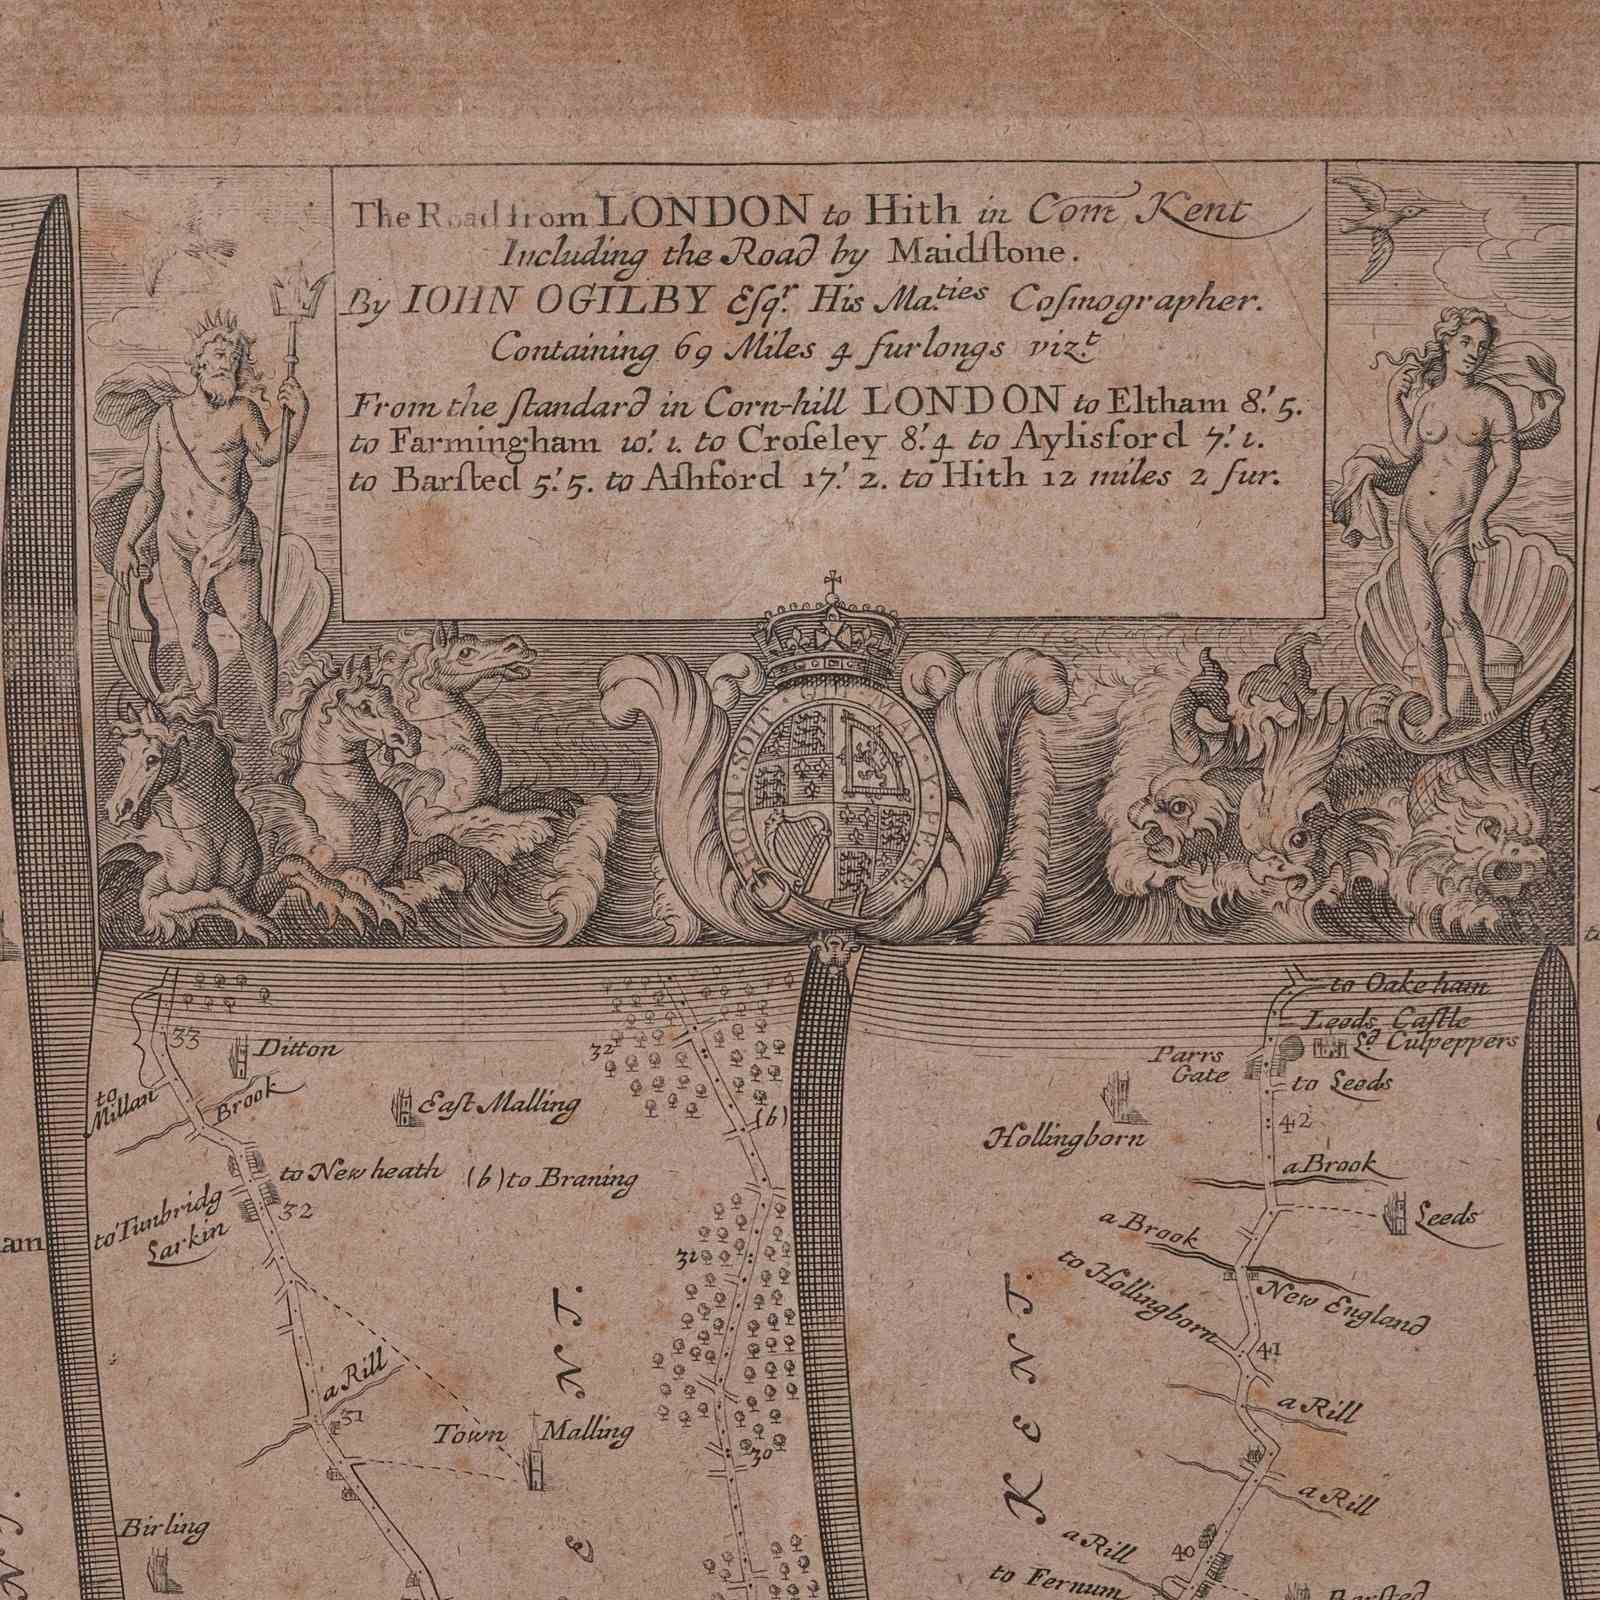 The Road from LONDON to Hith in Com Kent
Including the Road by Maidſtone.
By IOHN OGILBY Eſqr. His Ma.ties Coſmographer.
Containing 69 Miles 4 furlongs vizt.
From the ſtandard in Corn-hill LONDON to Eltham 8.' 5.
to Farmingham 10.' 1. to Croſeley 8.' 4 to Aylisford 7.' 1.
to Barſted 5.' 5. to Aſhford 17.' 2. to Hith 12 miles 2 fur.
HONI·SOIT·QUI·MAL·Y·PENSE
33
Ditton
to Millan
Brook
East Malling
32
(b)
to New heath
(b) to Braning
to Tunbridg
Larkin
32
31
a Rill
31
Town Malling
30
Birling
e N T.
am
to Oakeham
Leeds Castle
Ld Culpeppers
Parrs
Gate
to Leeds
42
Hollingborn
a Brook
Leeds
a Brook
to Hollingborn
New England
41
a Rill
a Rill
K e N T.
a Rill
40
to Fernum
Barſted